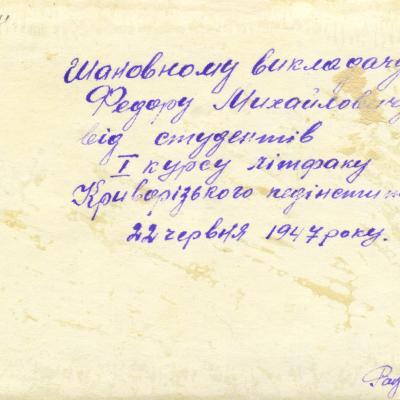 Шановному викладачу
Федору Михайлович
від студентів
I курсу літфаку
Криворізького педінститу
22 червня 1947 року.
Рад